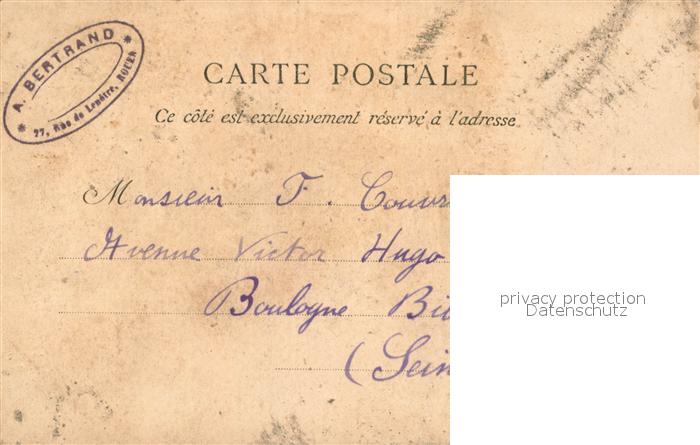 * A. BERTRAND *
77, Rue de Lenôtre, ROUEN
CARTE POSTALE
Ce côté est exclusivement réservé à l'adresse
Monsieur F. Couvr
Avenue Victor Hugo
Boulogne Bi
(Sein
privacy protection
Datenschutz